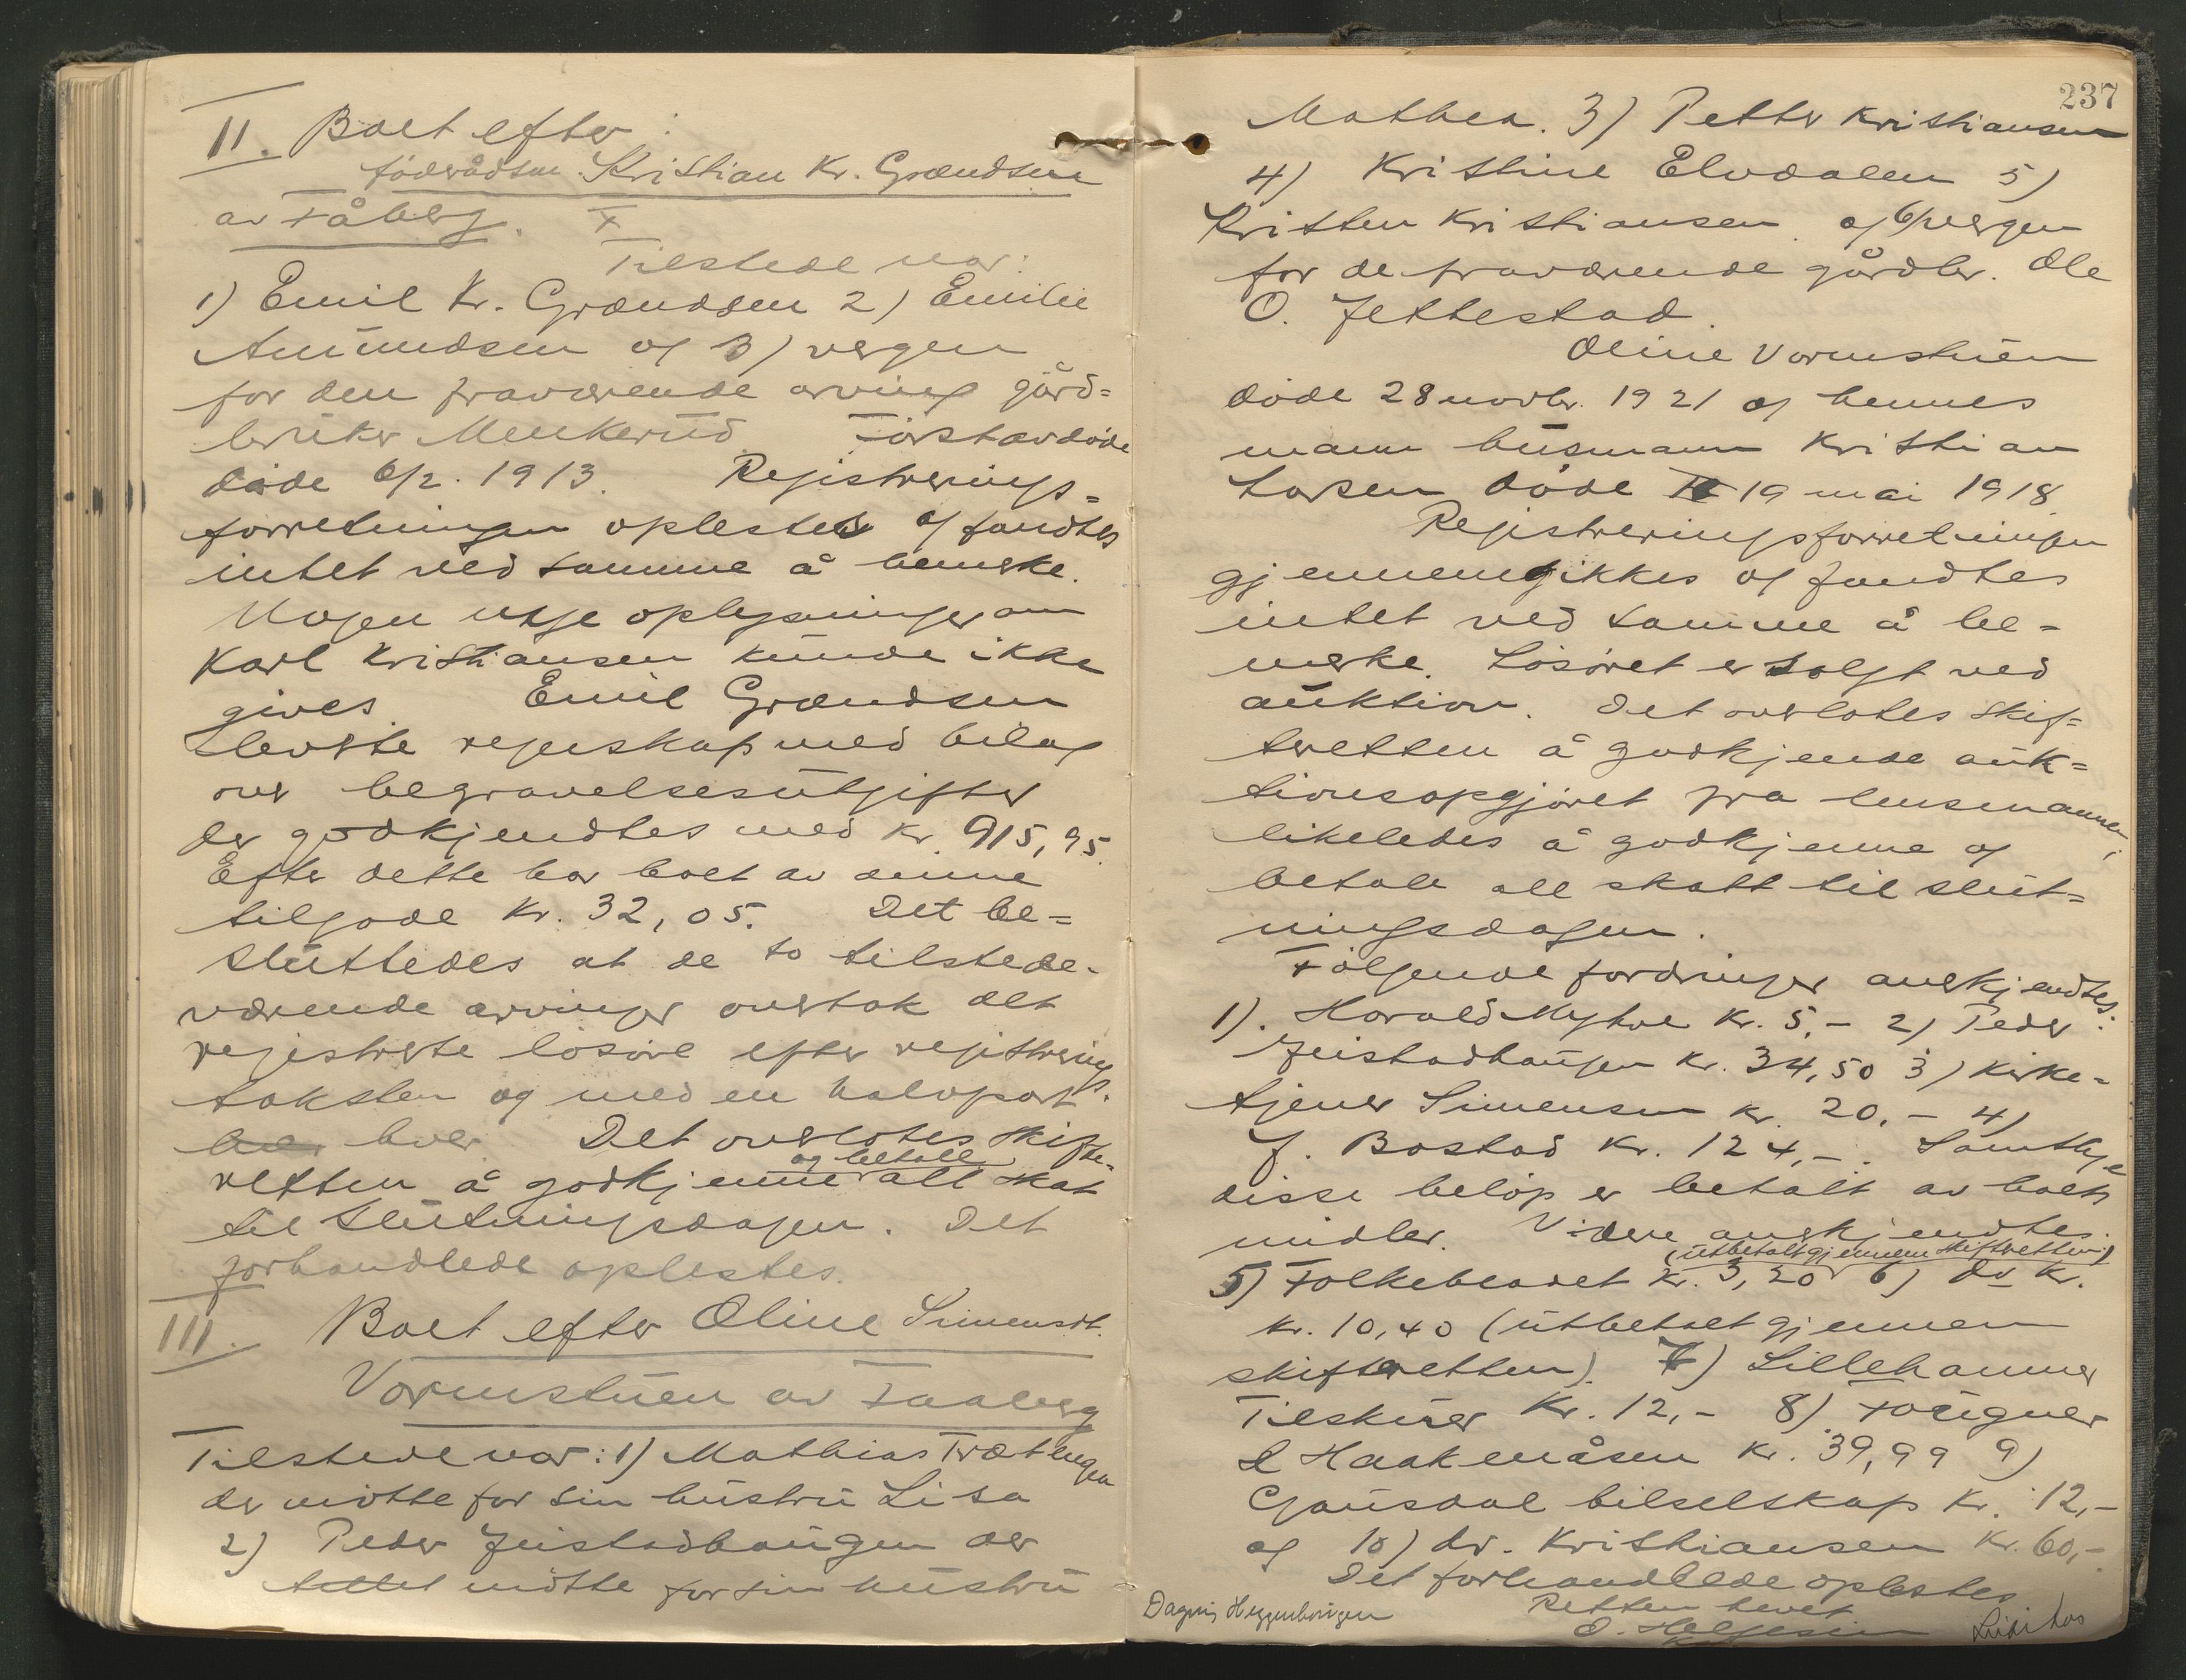 II. Boet efter:
föderådsm. Kristian Kr. Grændsen
av Fåberg.
Tilstede var:
1) Emil Kr. Grændsen 2) Emilie
Amundsen og 3) vergen
for den fraværende arving gård=
bruker Menkerud Förstavdöde
döde 6/2. 1913. Registrerings=
forretningen oplestes og fandtes
intet ved samme å bemerke.
Nogen nye oplysninger om
Karl Kristiansen kunde ikke
gives. Emil Grændsen
leverte regnskap med bilag
over begravelsesutgifter
der godkjendtes med kr. 915,95.
Efter dette har boet av denne
tilgode kr. 32,05. Det be=
sluttedes at de to tilstede-
værende arvinger overtok det
registrerte lösöre efter registrerings-
taksten og med en halvpart
hver. Det overlotes skifte-
retten å godkjenne og betale all skat
til slutningsdagen. Det
forhandlede oplestes.
III. Boet efter Oline Simensdt.
Vormstuen av Faaberg
Tilstede var: 1) Mathias Trætengen
der mötte for sin hustru Lisa
2) Peder Jeistadhaugen der
mötte for sin hustru
237
Mathea. 3) Petter Kristiansen
4) Kristine Elvdalen 5)
Kristen Kristiansen og 6) vergen
for de fraværende gårdbr. Ole
O. Jettestad.
Oline Vormstuen
döde 28 novbr. 1921 og hennes
mann husmann Kristian
Larsen döde 19 mai 1918.
Registreringsforretningen
gjennemgikkes og fandtes
intet ved samme å be=
merke. Lösöret er solgt ved
auktion. Det overlotes skif=
teretten å godkjende auk=
tionsopgjöret fra lensmannen,
likeledes å godkjenne og
betale all skatt til slut=
ningsdagen.
Fölgende fordringer anerkjendtes:
1). Harald Myhre kr. 5,- 2) Peder
Jeistadhaugen kr. 34,50 3) kirke=
tjener Simensen kr. 20,- 4)
J. Bostad kr. 124,-. Samtlige
disse belöp er betalt av boets
midler. Videre anerkjendtes:
5) Folkebladet kr. 3,20 (utbetalt gjennem skifteretten) 6) do kr.
kr. 10,40 (utbetalt gjennem
skifteretten). 7) Lillehammer
Tilskuer kr. 12,- 8)
& Haakenåsen kr. 39,99 9)
Gausdal bilselskap kr. 12,-
og 10) dr. Kristiansen kr. 60,-
Det forhandlede oplestes
Retten hevet
O. Helgesen
Dagny Heggenhougen